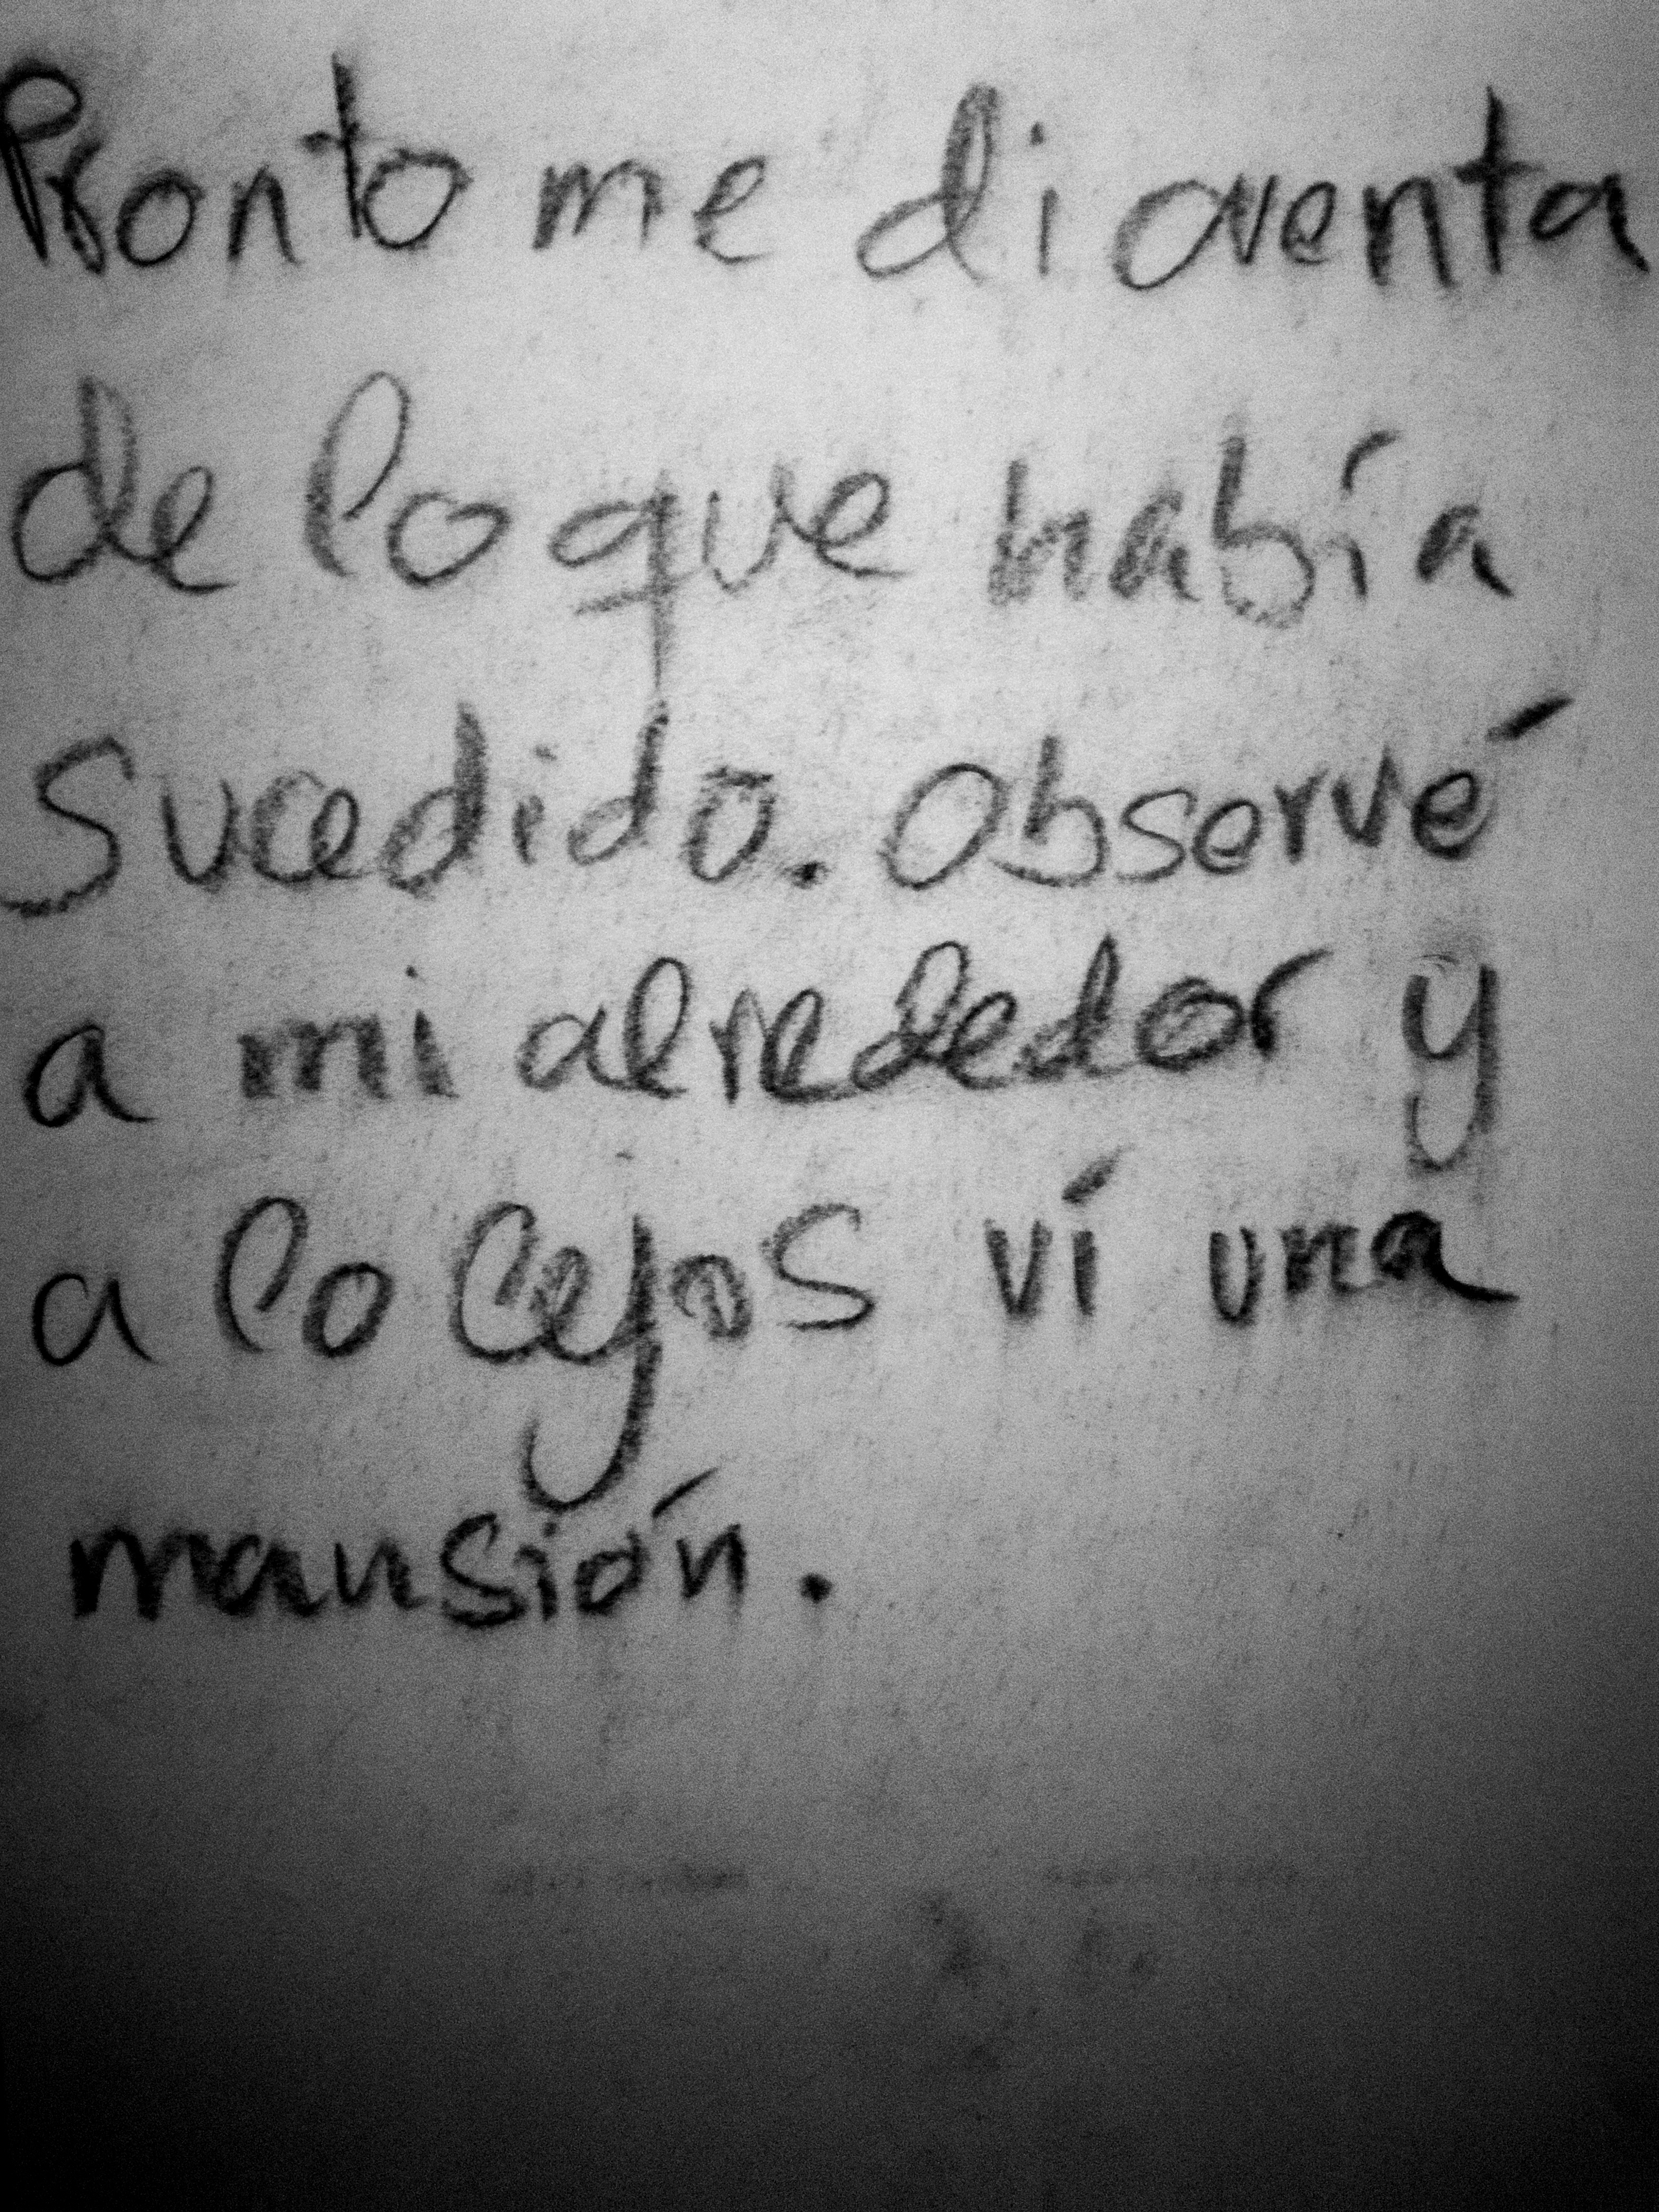 Pronto me di cuenta
de lo que había
Sucedido. Observé
a mi alrededor y
a lo lejos ví una
mansión.